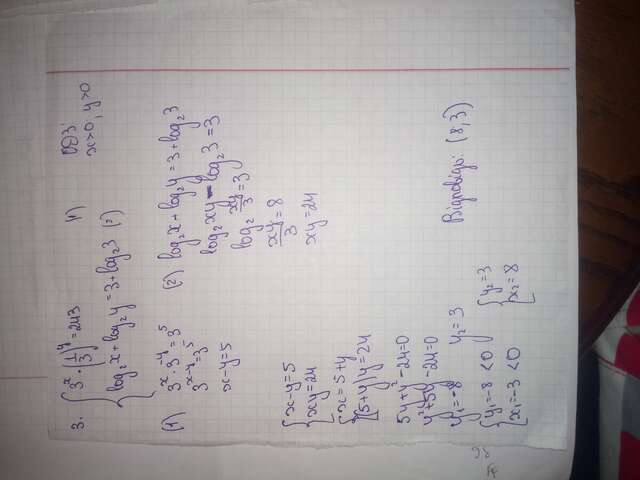 3. { 3^x · (1/3)^y = 243 (1) ОДЗ:
{ log₂x + log₂y = 3 + log₂3 (2) x>0; y>0
(1) 3^x · 3^-y = 3^5
3^x-y = 3^5
x-y=5
(2) log₂x + log₂y = 3 + log₂3
log₂xy - log₂3 = 3
log₂ xy/3 = 3
xy/3 = 8
xy=24
{ x-y=5
{ xy=24
{ x=5+y
{ (5+y)y=24
5y+y²-24=0
y²+5y-24=0
y₁=-8 y₂=3
{ y₁=-8<0 { y₂=3
{ x₁=-3<0 { x₂=8
Відповідь: (8;3)